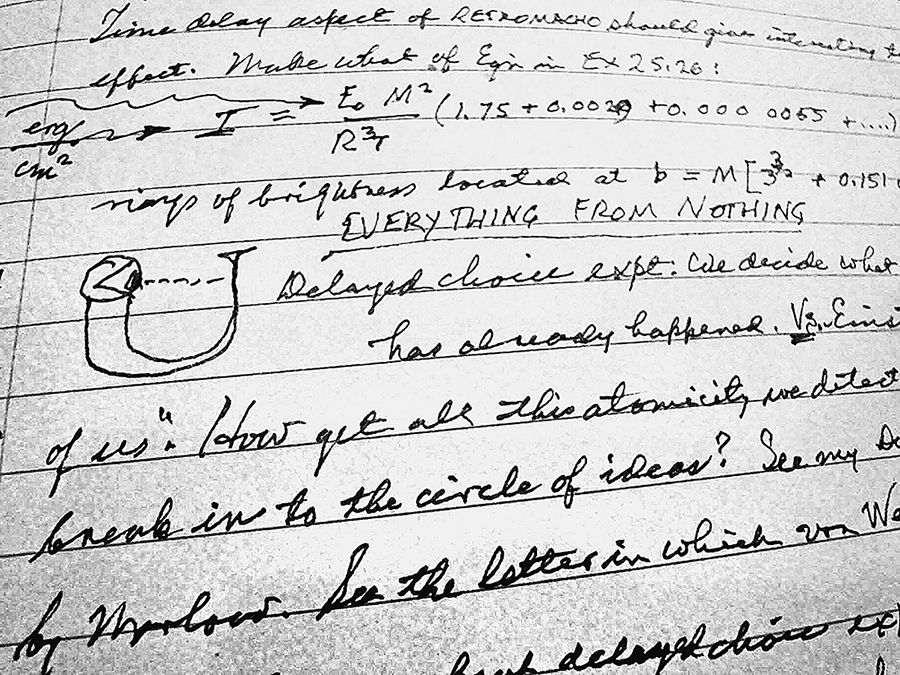 Time delay aspect of RETROMACHO should give interesting
effect. Make what of Eqn in Ex 25.26:
erg/cm² → I = E₀ M²/R³r (1.75 + 0.0029 + 0.000 0055 + ....)
rings of brightness located at b = M[3^3/2 + 0.151
EVERYTHING FROM NOTHING
Delayed choice expt: We decide what
has already happened. Vs. Eins
of us". How get all this atomicity, we detect
break in to the circle of ideas? See my
by Marlow. See the letter in which von We
delayed choice ex